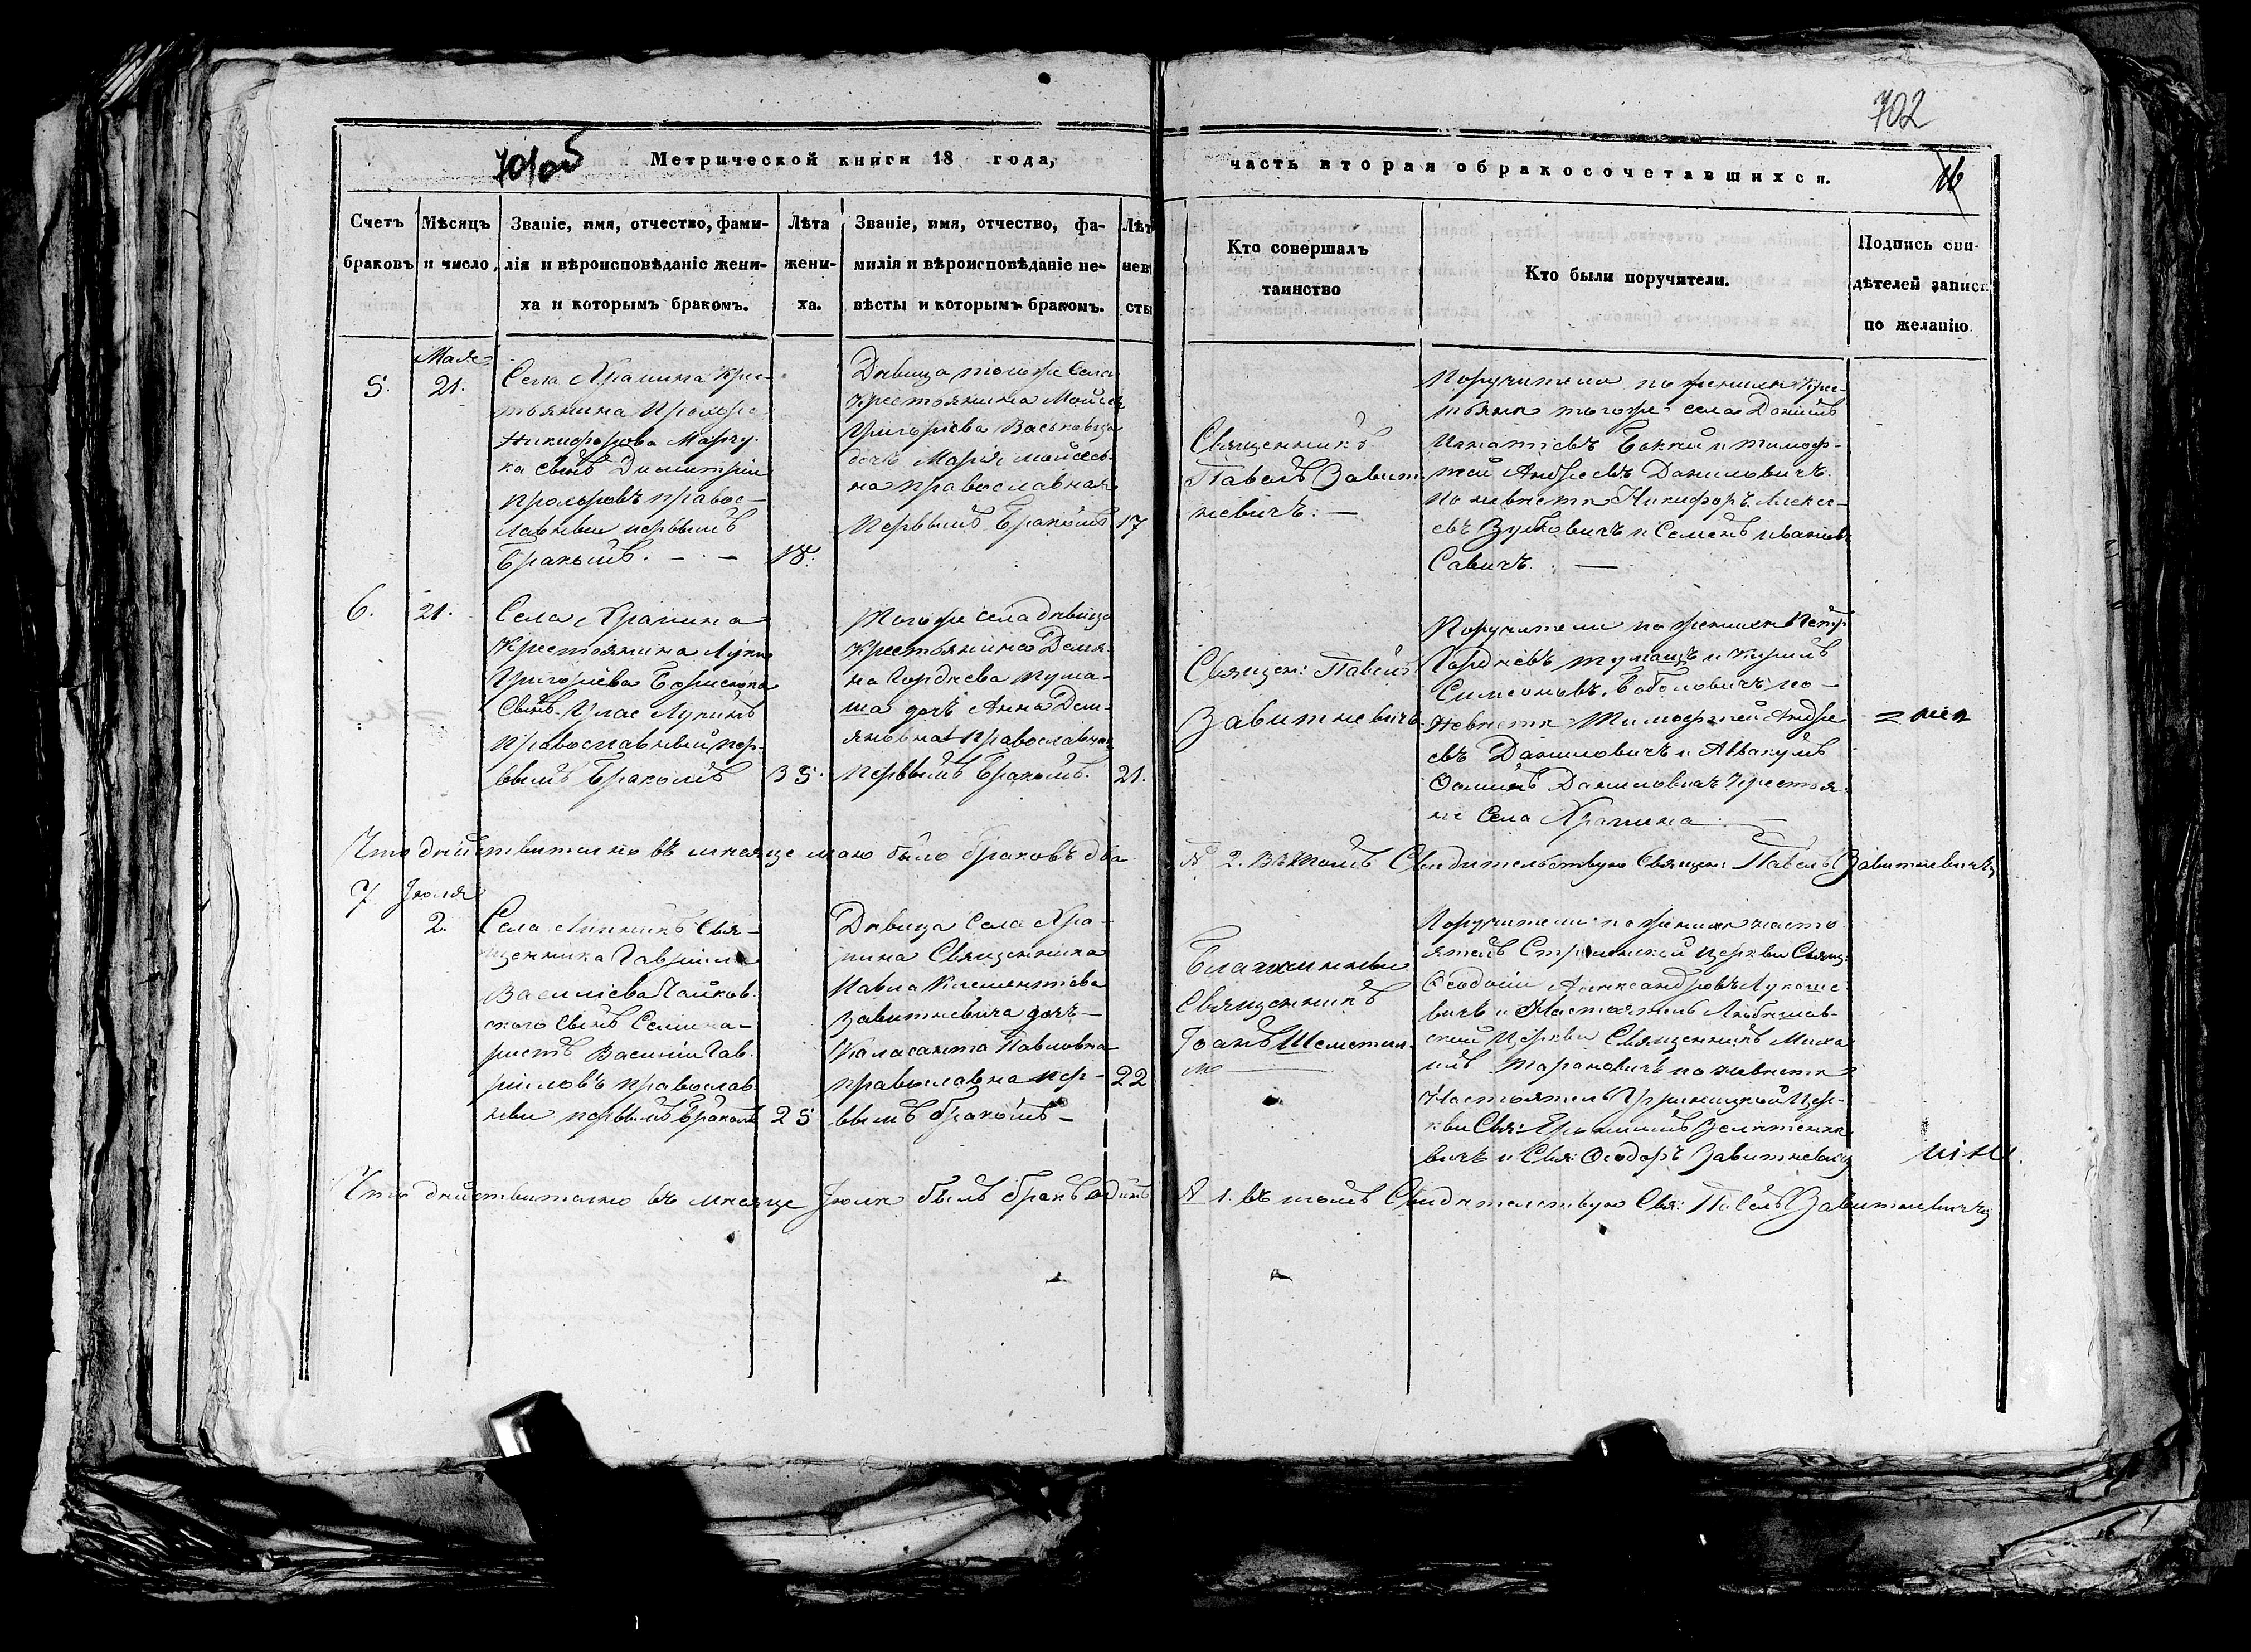 702
701об
Метрической книги 18 года,
часть вторая о бракосочетавшихся.
16
Счетъ
браковъ
Мѣсяцъ
и число
Званіе, имя, отчество, фами-
лія и вѣроисповѣданіе жени-
ха и которымъ бракомъ.
Лѣта
жени-
ха.
Званіе, имя, отчество, фа-
милія и вѣроисповѣданіе не-
вѣсты и которымъ бракомъ.
Лѣт
невѣ
сты
Кто совершалъ
таинство
Кто были поручители.
Подпись сви-
дѣтелей запис.
по желанію.
5.
Мая
21.
Села Храпина крес-
тьянина Прохора
Никифорова Марчу-
ка сынъ Димитрій
Прохоровъ правос-
лавный первымъ
бракомъ. — . —
18.
Дѣвица того же села
крестьянина Мойсея
Григоріева Васьковца
дочь Марія Мойсеев-
на православная
первымъ бракомъ
17
Священникъ
Павелъ Завит-
невичъ. —
Поручители по женихѣ крес-
тьяне того же села Даніилъ
Игнатіевъ и Тимоф-
тей Андреевъ Даниловичъ.
По невѣстѣ Никифоръ Алексе-
евъ Зубковичъ и Семенъ Ивановъ
Савичъ. —
6.
21.
Села Храпина
крестьянина Луки
Григоріева
сынъ Улас Лукинъ
православный пер-
вымъ бракомъ
35.
Того же села дѣвица
крестьянина Демя-
на Гордѣева Тума-
ша дочь Анна Дем-
яновна православная
первымъ бракомъ.
21.
Священ: Павелъ
Завитневичъ.
Поручители по женихѣ Петр
Гордѣевъ Тумашъ и Кирилъ
Симеоновъ по-
невѣстѣ Тимофтей Андре
евъ Даниловичъ и Аввакумъ
Даниловичъ крестья
не села Храпина. —
Что дѣйствительно въ мѣсяце маю было браковъ два
№ 2. въ томъ свидѣтельствую Священ: Павелъ Завитневичъ
7
Іюля
2.
Села Свя-
щенника Гавріила
Василіева Чайков-
ского сынъ Семина-
ристъ Василій Гав-
ріиловъ православ-
ный первымъ бракомъ
25
Дѣвица села Хра-
пина Священника
Павла Климентіева
Завитневича дочь —
Каласанта Павловна
православна пер-
вымъ бракомъ —
22
Благочинный
Священникъ
Іоанъ Шеметил-
ло
Поручители: по женихѣ насто
ятель церкви Свящ:
Феодосій Александровъ Лукаше-
вичъ и Настоятель Любешов-
ской церкви Священникъ Миха
илъ Тарановичъ по невѣстѣ
Настоятель Цер-
кви Свя:
вичъ и Свя: Феодоръ Завитневичъ
Что дѣйствительно въ мѣсяце Іюля былъ бракъ одинъ
№ 1. въ томъ свидѣтельствую Свя: Павелъ Завитневичъ